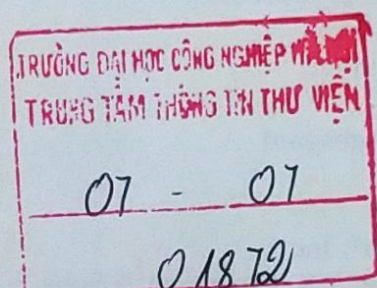 TRƯỜNG ĐẠI HỌC CÔNG NGHIỆP HÀ NỘI
TRUNG TÂM THÔNG TIN THƯ VIỆN
07 - 07
01872